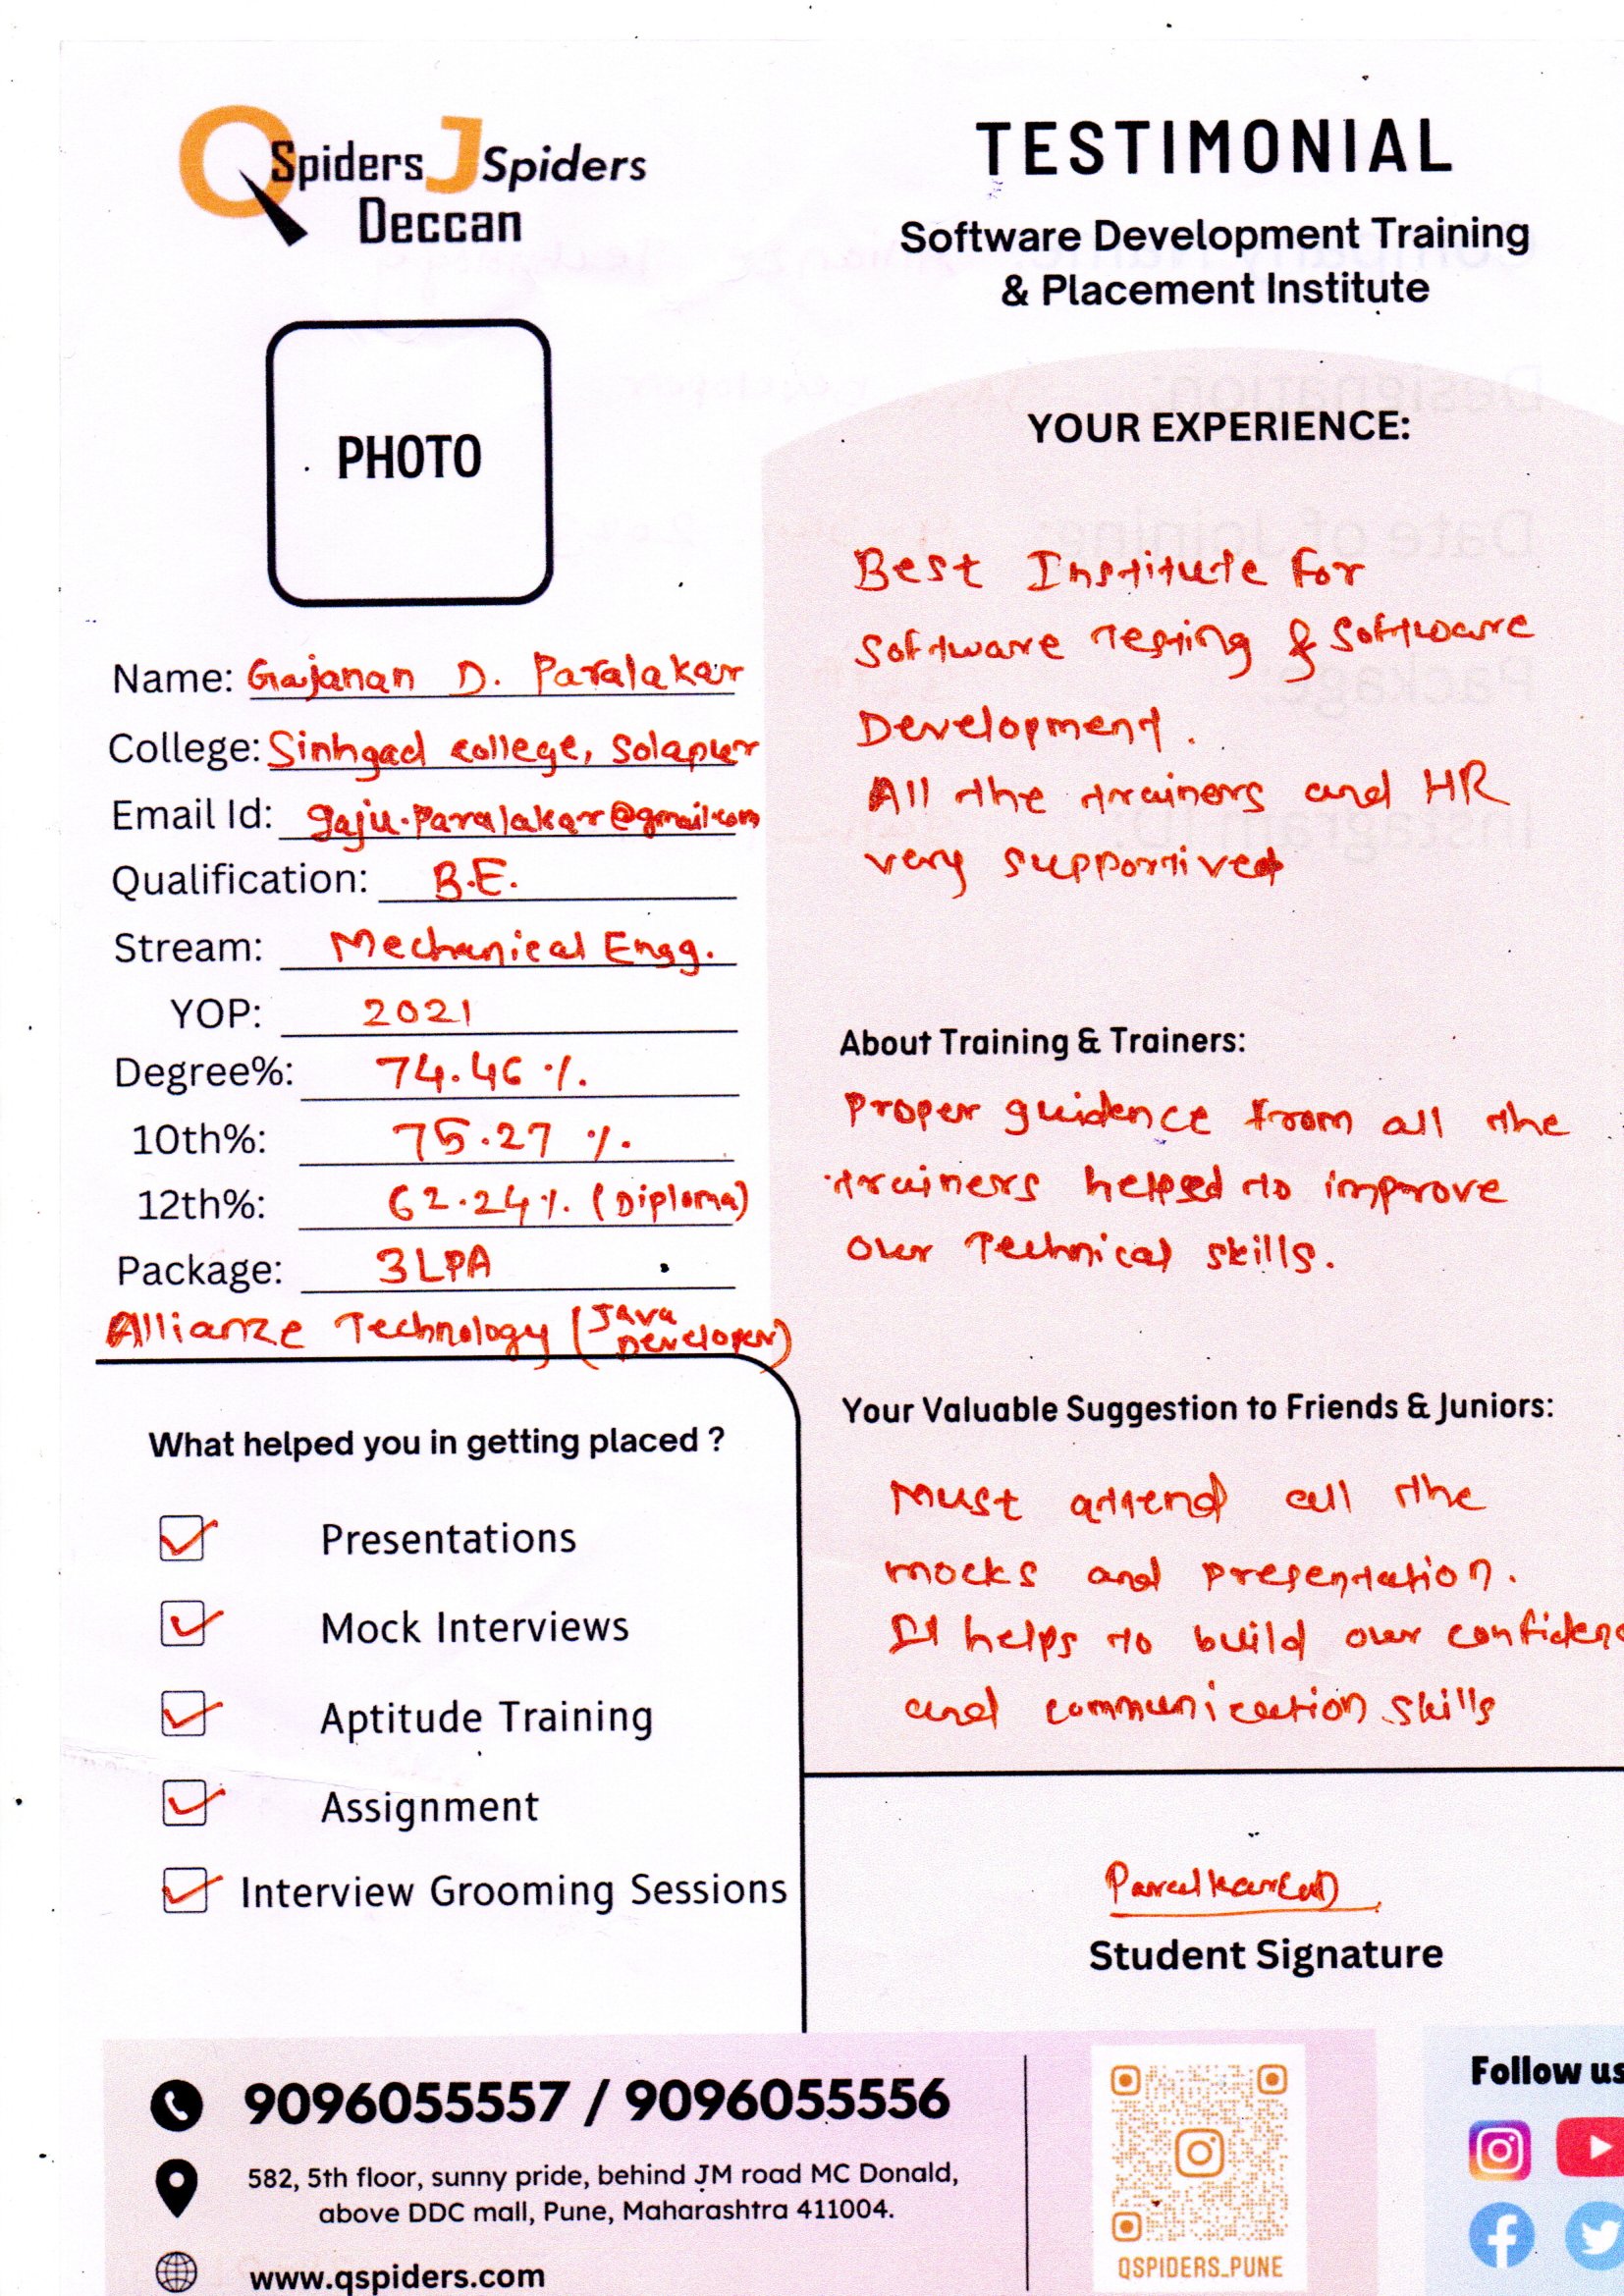 QSpiders JSpiders
Deccan
TESTIMONIAL
Software Development Training
& Placement Institute
PHOTO
Name: Gajanan D. Paralakar
College: Sinhgad college, Solapur
Email Id: gaju.paralakar@gmail.com
Qualification: B.E.
Stream: Mechanical Engg.
YOP: 2021
Degree%: 74.46 %.
10th%: 75.27 %.
12th%: 62.24%. (Diploma)
Package: 3 LPA
Allianze Technology (Java Developer)
What helped you in getting placed ?
Presentations
Mock Interviews
Aptitude Training
Assignment
Interview Grooming Sessions
YOUR EXPERIENCE:
Best Institute for
Software Testing & Software
Development.
All the trainers and HR
very supportived
About Training & Trainers:
Proper guidence from all the
trainers helped to improve
our Technical skills.
Your Valuable Suggestion to Friends & Juniors:
Must attend all the
mocks and presentation.
It helps to build our confidenc
and communication skills
Student Signature
9096055557 / 9096055556
582, 5th floor, sunny pride, behind JM road MC Donald,
above DDC mall, Pune, Maharashtra 411004.
www.qspiders.com
QSPIDERS_PUNE
Follow us